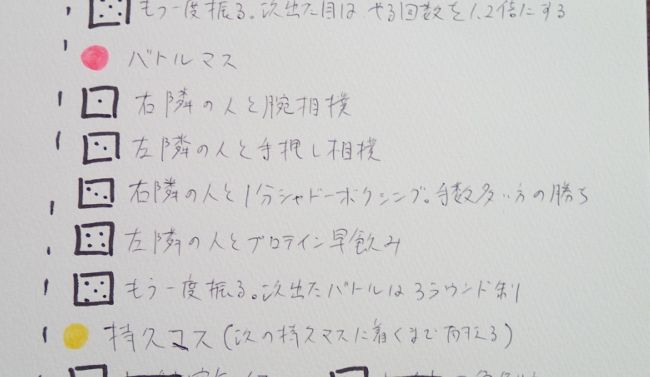 もう一度振る。次出た目はやる回数を1.2倍にする
バトルマス
右隣の人と腕相撲
左隣の人と手押し相撲
右隣の人と1分シャドーボクシング。手数多い方の勝ち
左隣の人とプロテイン早飲み
もう一度振る。次出たバトルは3ラウンド制
持久マス(次の持久マスに着くまで耐える)